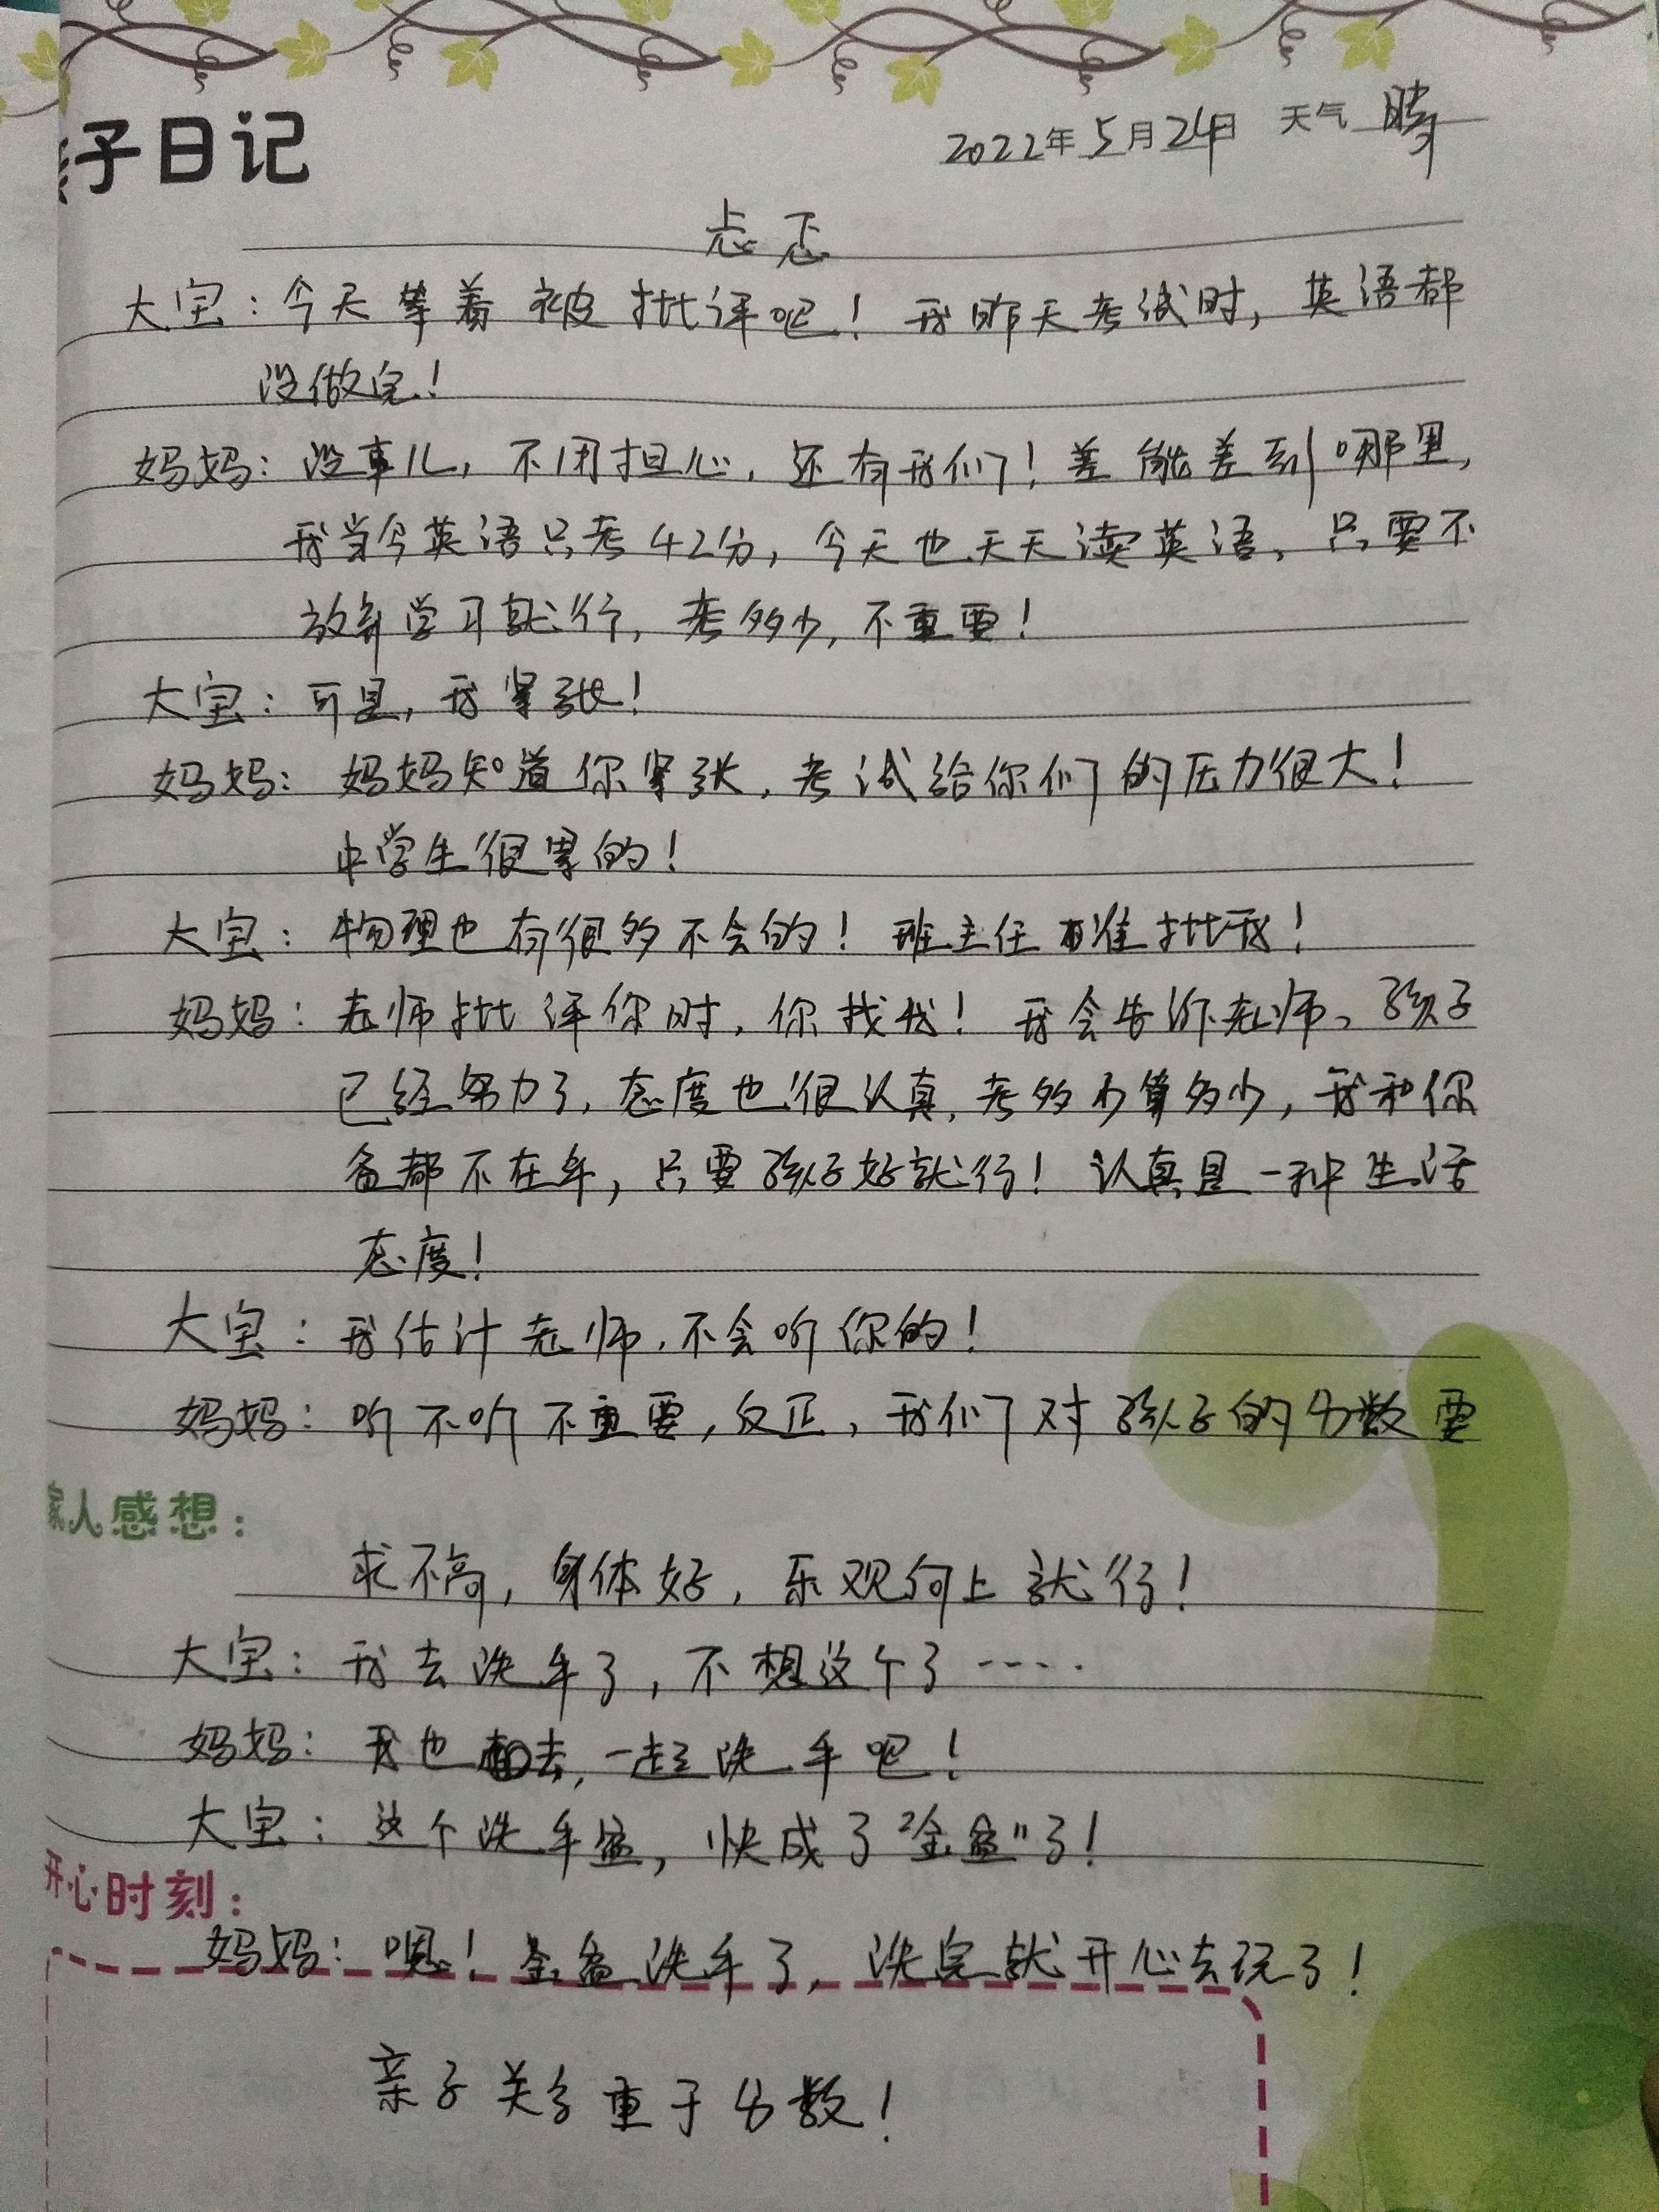 亲子日记
2022年5月24日 天气 晴
忐忑
大宝：今天等着被批评吧！我昨天考试时，英语都
没做完！
妈妈：没事儿，不用担心，还有我们！差能差到哪里，
我当今英语只考42分，今天也天天读英语，只要不
放弃学习就行，考多少，不重要！
大宝：可是，我紧张！
妈妈：妈妈知道你紧张，考试给你们的压力很大！
中学生很累的！
大宝：物理也有很多不会的！班主任准批我！
妈妈：老师批评你时，你找我！我会告诉老师、孩子
已经努力了，态度也很认真，考多少算多少，我和你
爸都不在乎，只要孩子好就行！认真是一种生活
态度！
大宝：我估计老师，不会听你的！
妈妈：听不听不重要，反正，我们对孩子的分数要
家人感想：
求不高，身体好，乐观向上就行！
大宝：我去洗手了，不想这个了·····
妈妈：我也去，一起洗手吧！
大宝：这个洗手盆，快成了“金盆”了！
开心时刻：
妈妈：嗯！金盆洗手了，洗完就开心去玩了！
亲子关系重于分数！